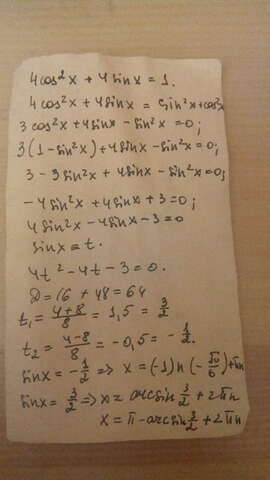 4cos²x + 4sinx = 1.
4cos²x + 4sinx = sin²x + cos²x
3cos²x + 4sinx - sin²x = 0;
3(1 - sin²x) + 4sinx - sin²x = 0;
3 - 3sin²x + 4sinx - sin²x = 0;
-4sin²x + 4sinx + 3 = 0;
4sin²x - 4sinx - 3 = 0
sinx = t.
4t² - 4t - 3 = 0.
D = 16 + 48 = 64
t₁ = (4+8)/8 = 1,5 = 3/2
t₂ = (4-8)/8 = -0,5 = -1/2.
sinx = -1/2 => x = (-1)n (-π/6) + πn
sinx = 3/2 => x = arcsin 3/2 + 2πn
x = π - arcsin 3/2 + 2πn